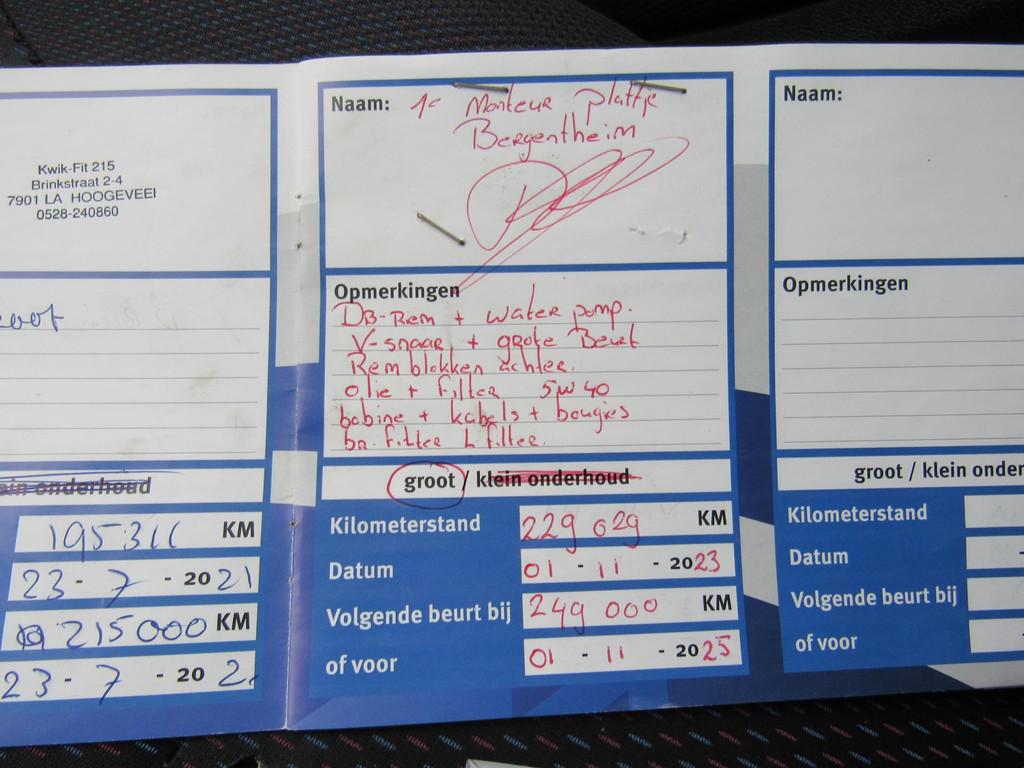 Kwik-Fit 215
Brinkstraat 2-4
7901 LA HOOGEVEEI
0528-240860
oot
ein onderhoud
195311 KM
23 - 7 - 2021
215000 KM
23 - 7 - 202
Naam: 1e Monteur plattje
Bergentheim
Opmerkingen
DB-Rem + water pomp.
V-snaar + grote Beurt
Rem blokken achter.
olie + filter 5W40
bobine + kabels + bougies
br. filter L filter.
groot / klein onderhoud
Kilometerstand 229 029 KM
Datum 01 - 11 - 2023
Volgende beurt bij 249 000 KM
of voor 01 - 11 - 2025
Naam:
Opmerkingen
groot / klein onder
Kilometerstand
Datum
Volgende beurt bij
of voor